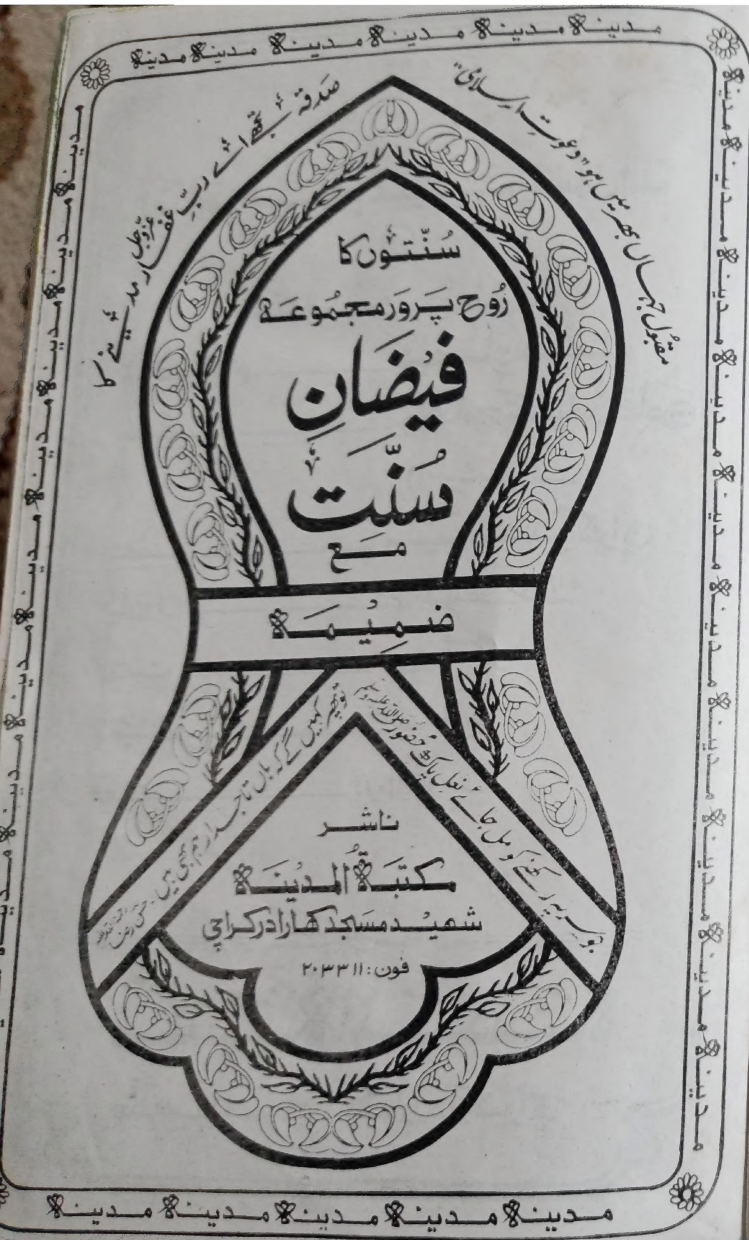 مدینہ مدینہ مدینہ مدینہ مدینہ مدینہ
مقبول جہاں بھر میں ہو "دعوتِ اسلامی"
صدقہ تجھے اے ربِّ غفار عزوجل مدینے کا
سُنّتوں کا
رُوح پَروَر مجمُوعَہ
فیضانِ
سُنّت
مَع
ضمِیمَہ
جو سر پہ رکھنے کو مل جائے نعلِ پاکِ حضُور صلی اللہ علیہ وسلم
تو پھر کہیں گے کہ ہاں تاجدار ہم بھی ہیں
ناشر
مکتبۃُ المدینہ
شھید مسجد کھارادر کراچی
فون: ۲۰۳۳۱۱
مدینہ مدینہ مدینہ مدینہ مدینہ